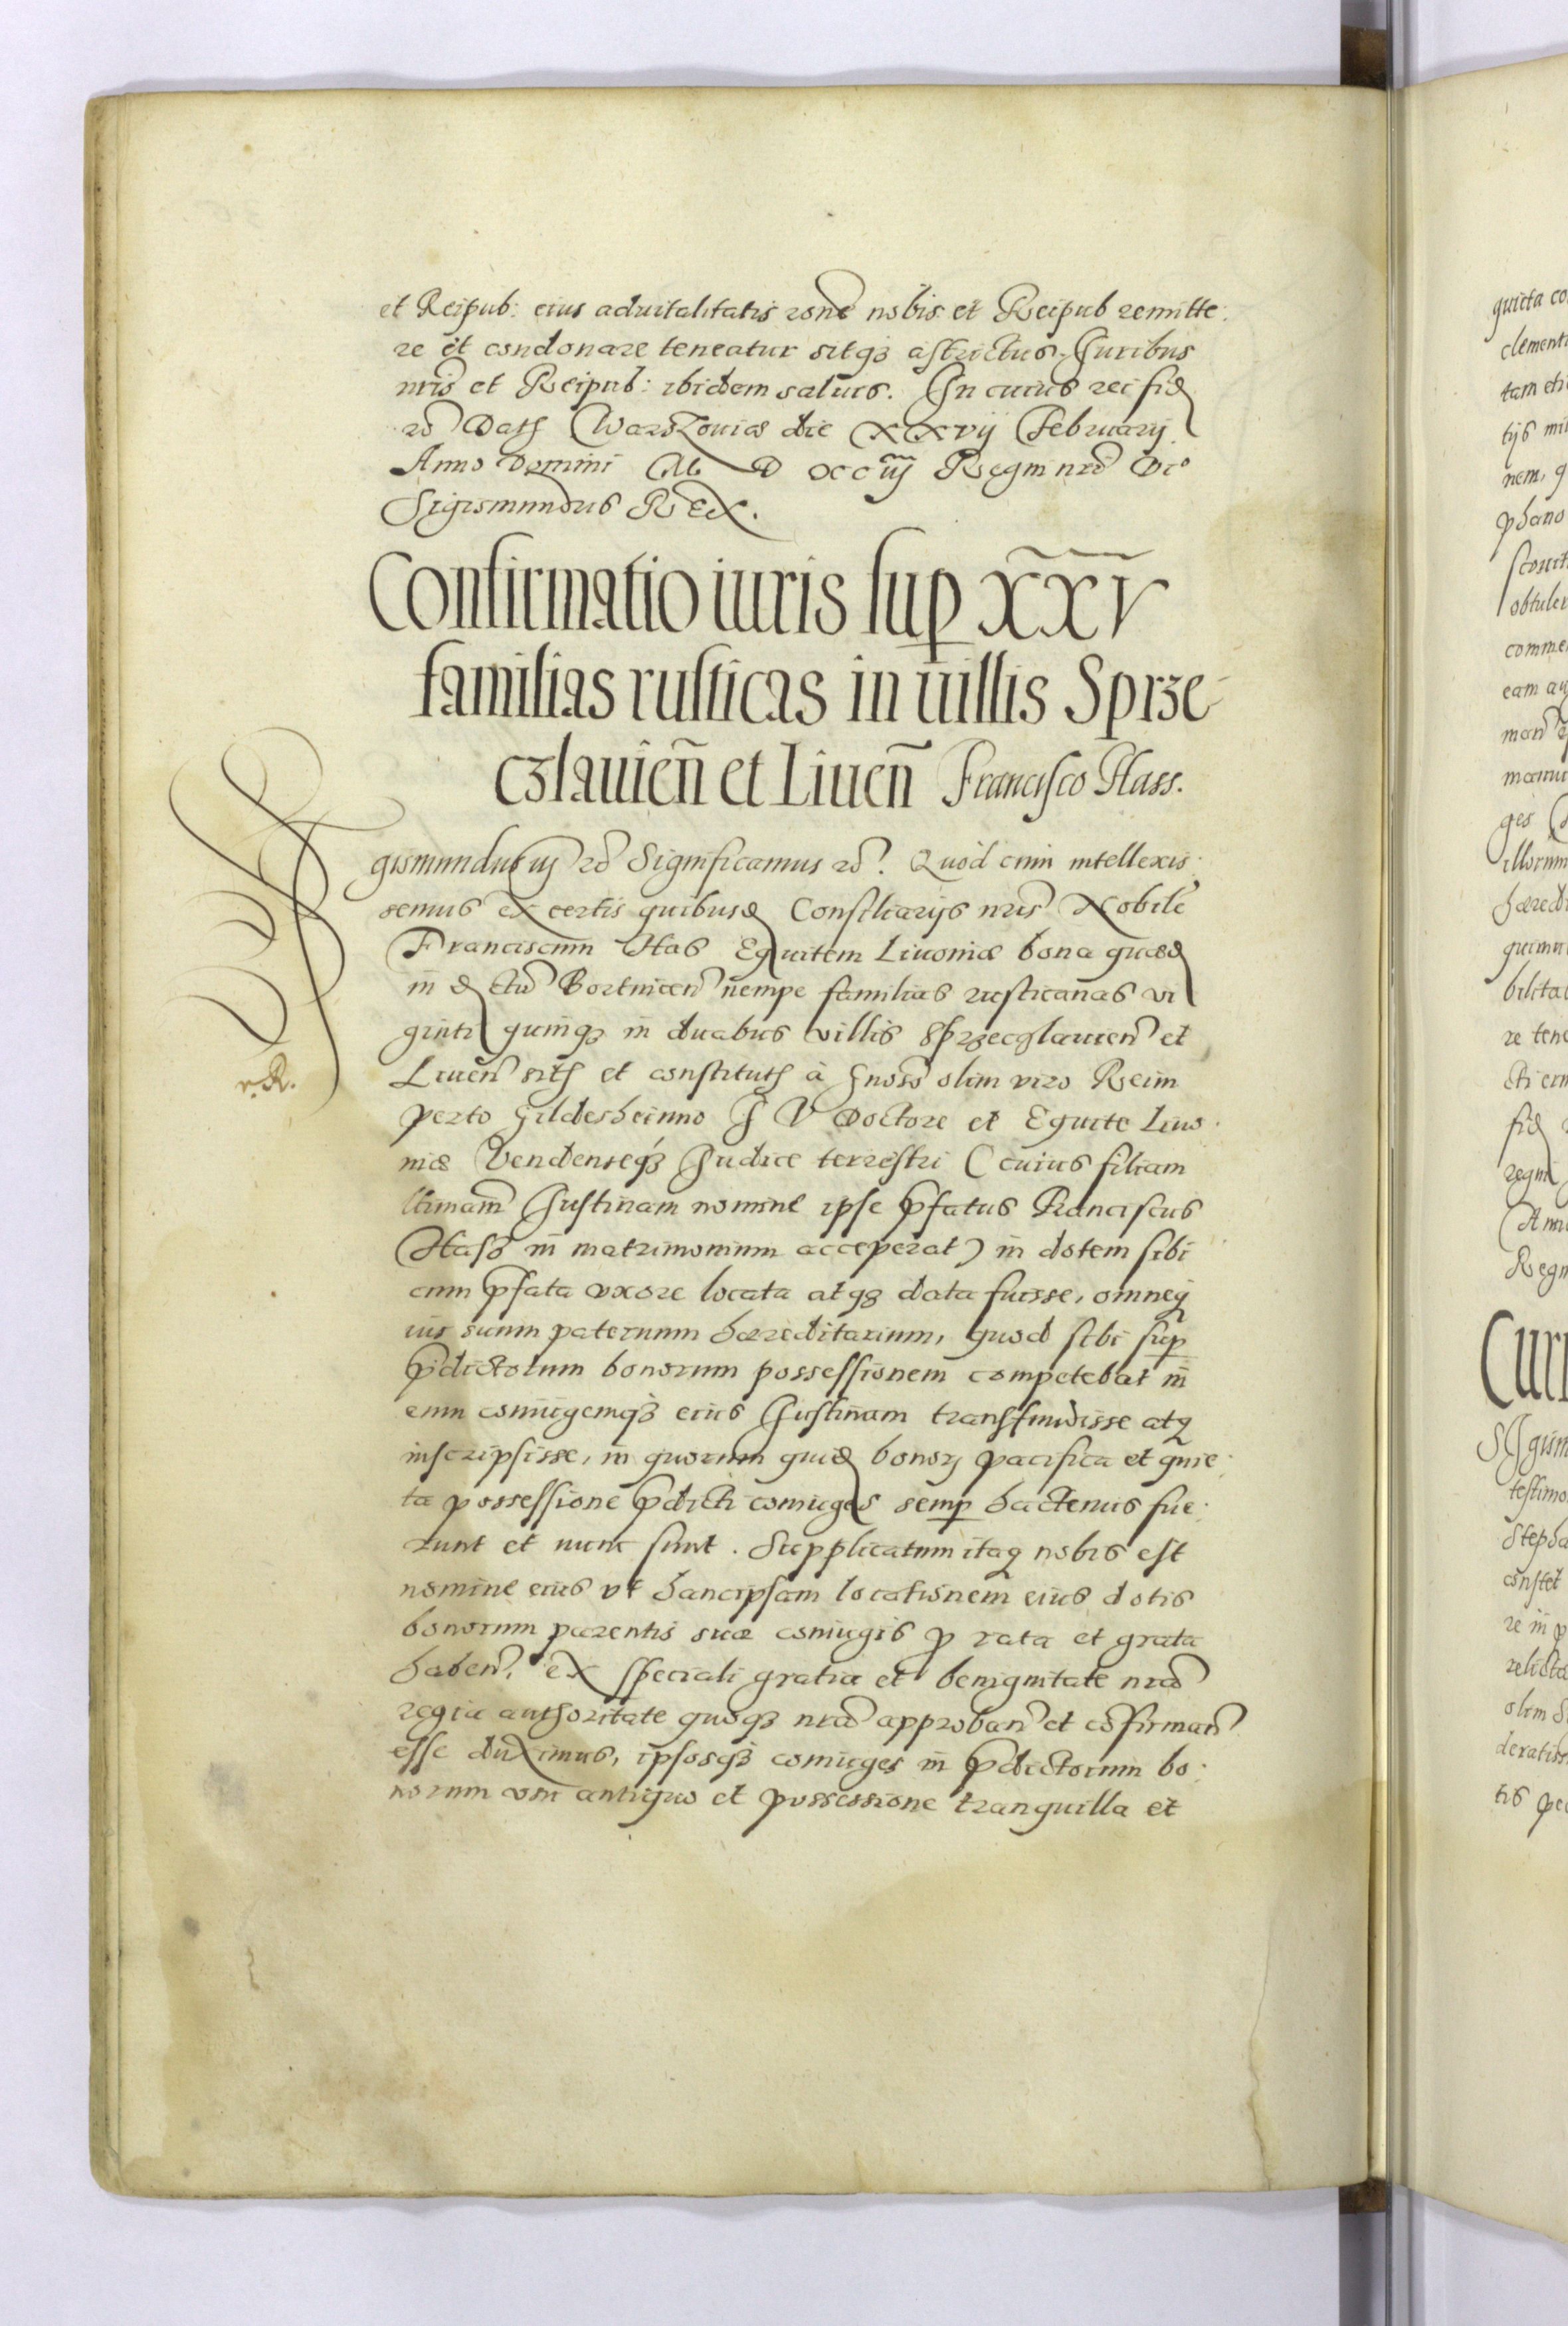 et Reipub: eius aduitalitatis rone nobis et Reipub remitte.
re et condonare teneatur sitq₃ astrictus. Juribus
nris et Reipub: ibidem saluis. In cuius rei fid
rc Dat Warszouiæ die XXVij February
Anno Domini M D XCiij Regni nri
Sigismundus REX.
Confirmatio iuris sup XXV
familias rusticas in uillis Sprze-
czlauien et Liuen Francisco Hass.
gismundus iij rc Significamus rc. Quod cum intellexis.
semus ex certis quibusd Consiliarijs nris Nobile
Franciscum Has Equitem Liuoniæ bona quæd
in d ctu nempe familias rusticanas vi
ginti quinq₃ in duabus villis Sprzeczlauien et
Liuen sit et constitut à olim viro Reim
perto Hildesheimo J V Doctore et Equite Liuo.
niæ Vendenseq₃ Judice terrestri (cuius filiam
Justinam nomine ipse pfatus Franciscus
Hass in matrimonium acceperat) in dotem sibi
cum pfata vxore locata atq₃ data fuisse, omneq
ius suum paternum hæreditarium, quod sibi sup
pdictorum bonorum possessionem competebat in
eum coniugemq₃ eius Justinam transfudisse atq
inscripsisse, in quorum quid bonor pacifica et quie.
ta possessione pdicti coniuges semp hactenus fue.
runt et nunc sunt. Supplicatum itaq nobis est
nomine eius vt hanc ipsam locationem eius dotis
bonorum parentis suæ coniugis p rata et grata
haben, ex speciali gratia et benignitate nra
regia authoritate quoq₃ nra approban et cofirman
esse duximus, ipsosq₃ coniuges in pdictorum bo.
norum vsu antiquo et possessione tranquilla et